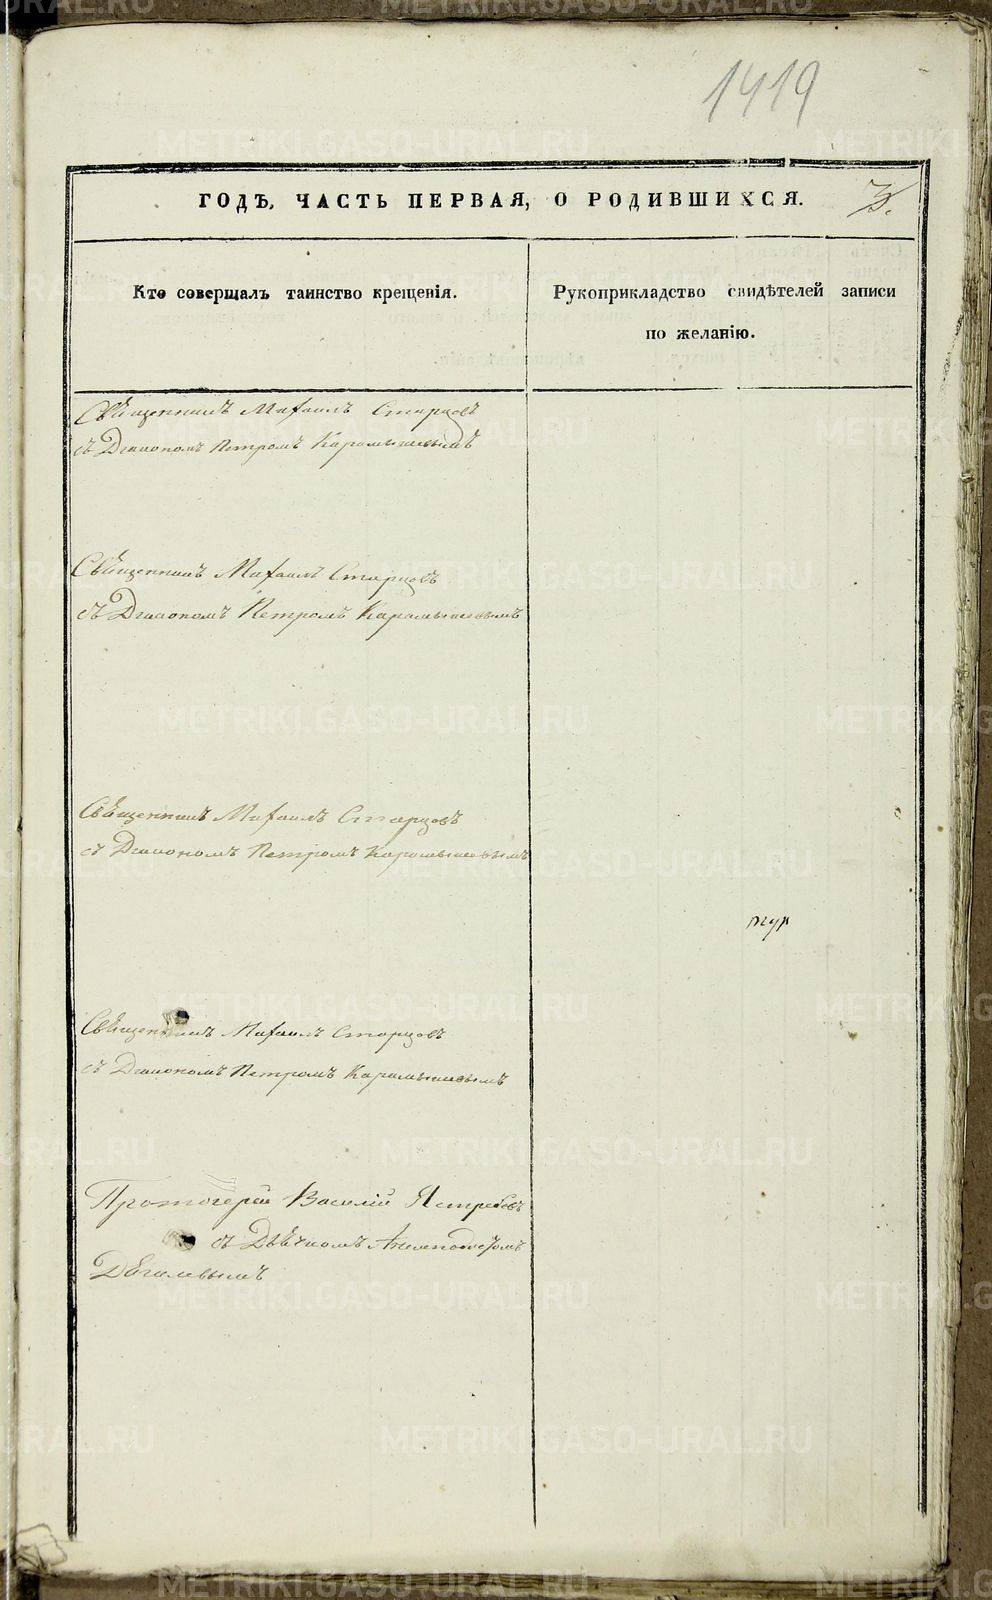 1419
ГОДѢ, ЧАСТЬ ПЕРВАЯ, О РОДИВШИХСЯ.
3.
Кто совершалъ таинство крещенія.
Рукоприкладство свидѣтелей записи
по желанію.
Священникъ Михаилъ Старцовъ
съ Діакономъ Петромъ Карамышевымъ
Священникъ Михаилъ Старцовъ
съ Діакономъ Петромъ Карамышевымъ
Священникъ Михаилъ Старцовъ
съ Діакономъ Петромъ Карамышевымъ
Священникъ Михаилъ Старцовъ
съ Діакономъ Петромъ Карамышевымъ
Протоіерей Василій Ястребовъ
съ Дьячкомъ
METRIKI.GASO-URAL.RU